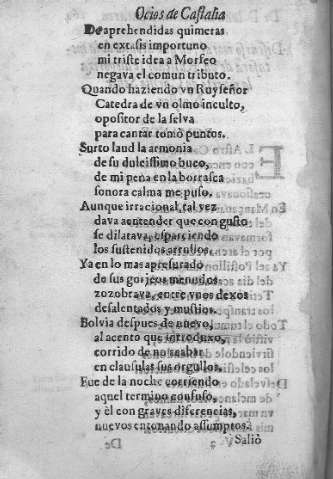 Ocios de Castalia
De aprehendidas quimeras
en extasis importuno
mi triste idea a Morfeo
negava el comun tributo.
Quando haziendo vn Ruyseñor
Catedra de vn olmo inculto,
opositor de la selva
para cantar tomò puntos.
Surto laud la armonia
de su dulcissimo buco,
de mi pena en la borrasca
sonora calma me puso.
Aunque irracional, tal vez
dava aentender que con gusto
se dilatava, esparciendo
los sustenidos arrullos.
Ya en lo mas apresurado
de sus gorjeos menudos
zozobrava, entre vnos dexos
desalentados y mustios.
Bolvia despues de nuevo,
al acento que introduxo,
corrido de no acabar
en clausulas sus orgullos.
Fue de la noche corriendo
aquel termino confuso,
y èl con graves diferencias,
nuevos entonando assumptos.
y Saliò